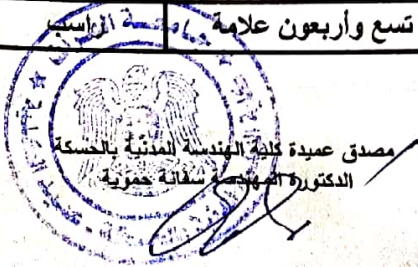 تسع وأربعون علامة
راسب
مصدق عميدة كلية الهندسة المدنية بالحسكة
الدكتورة المهندسة سفانة حمزية